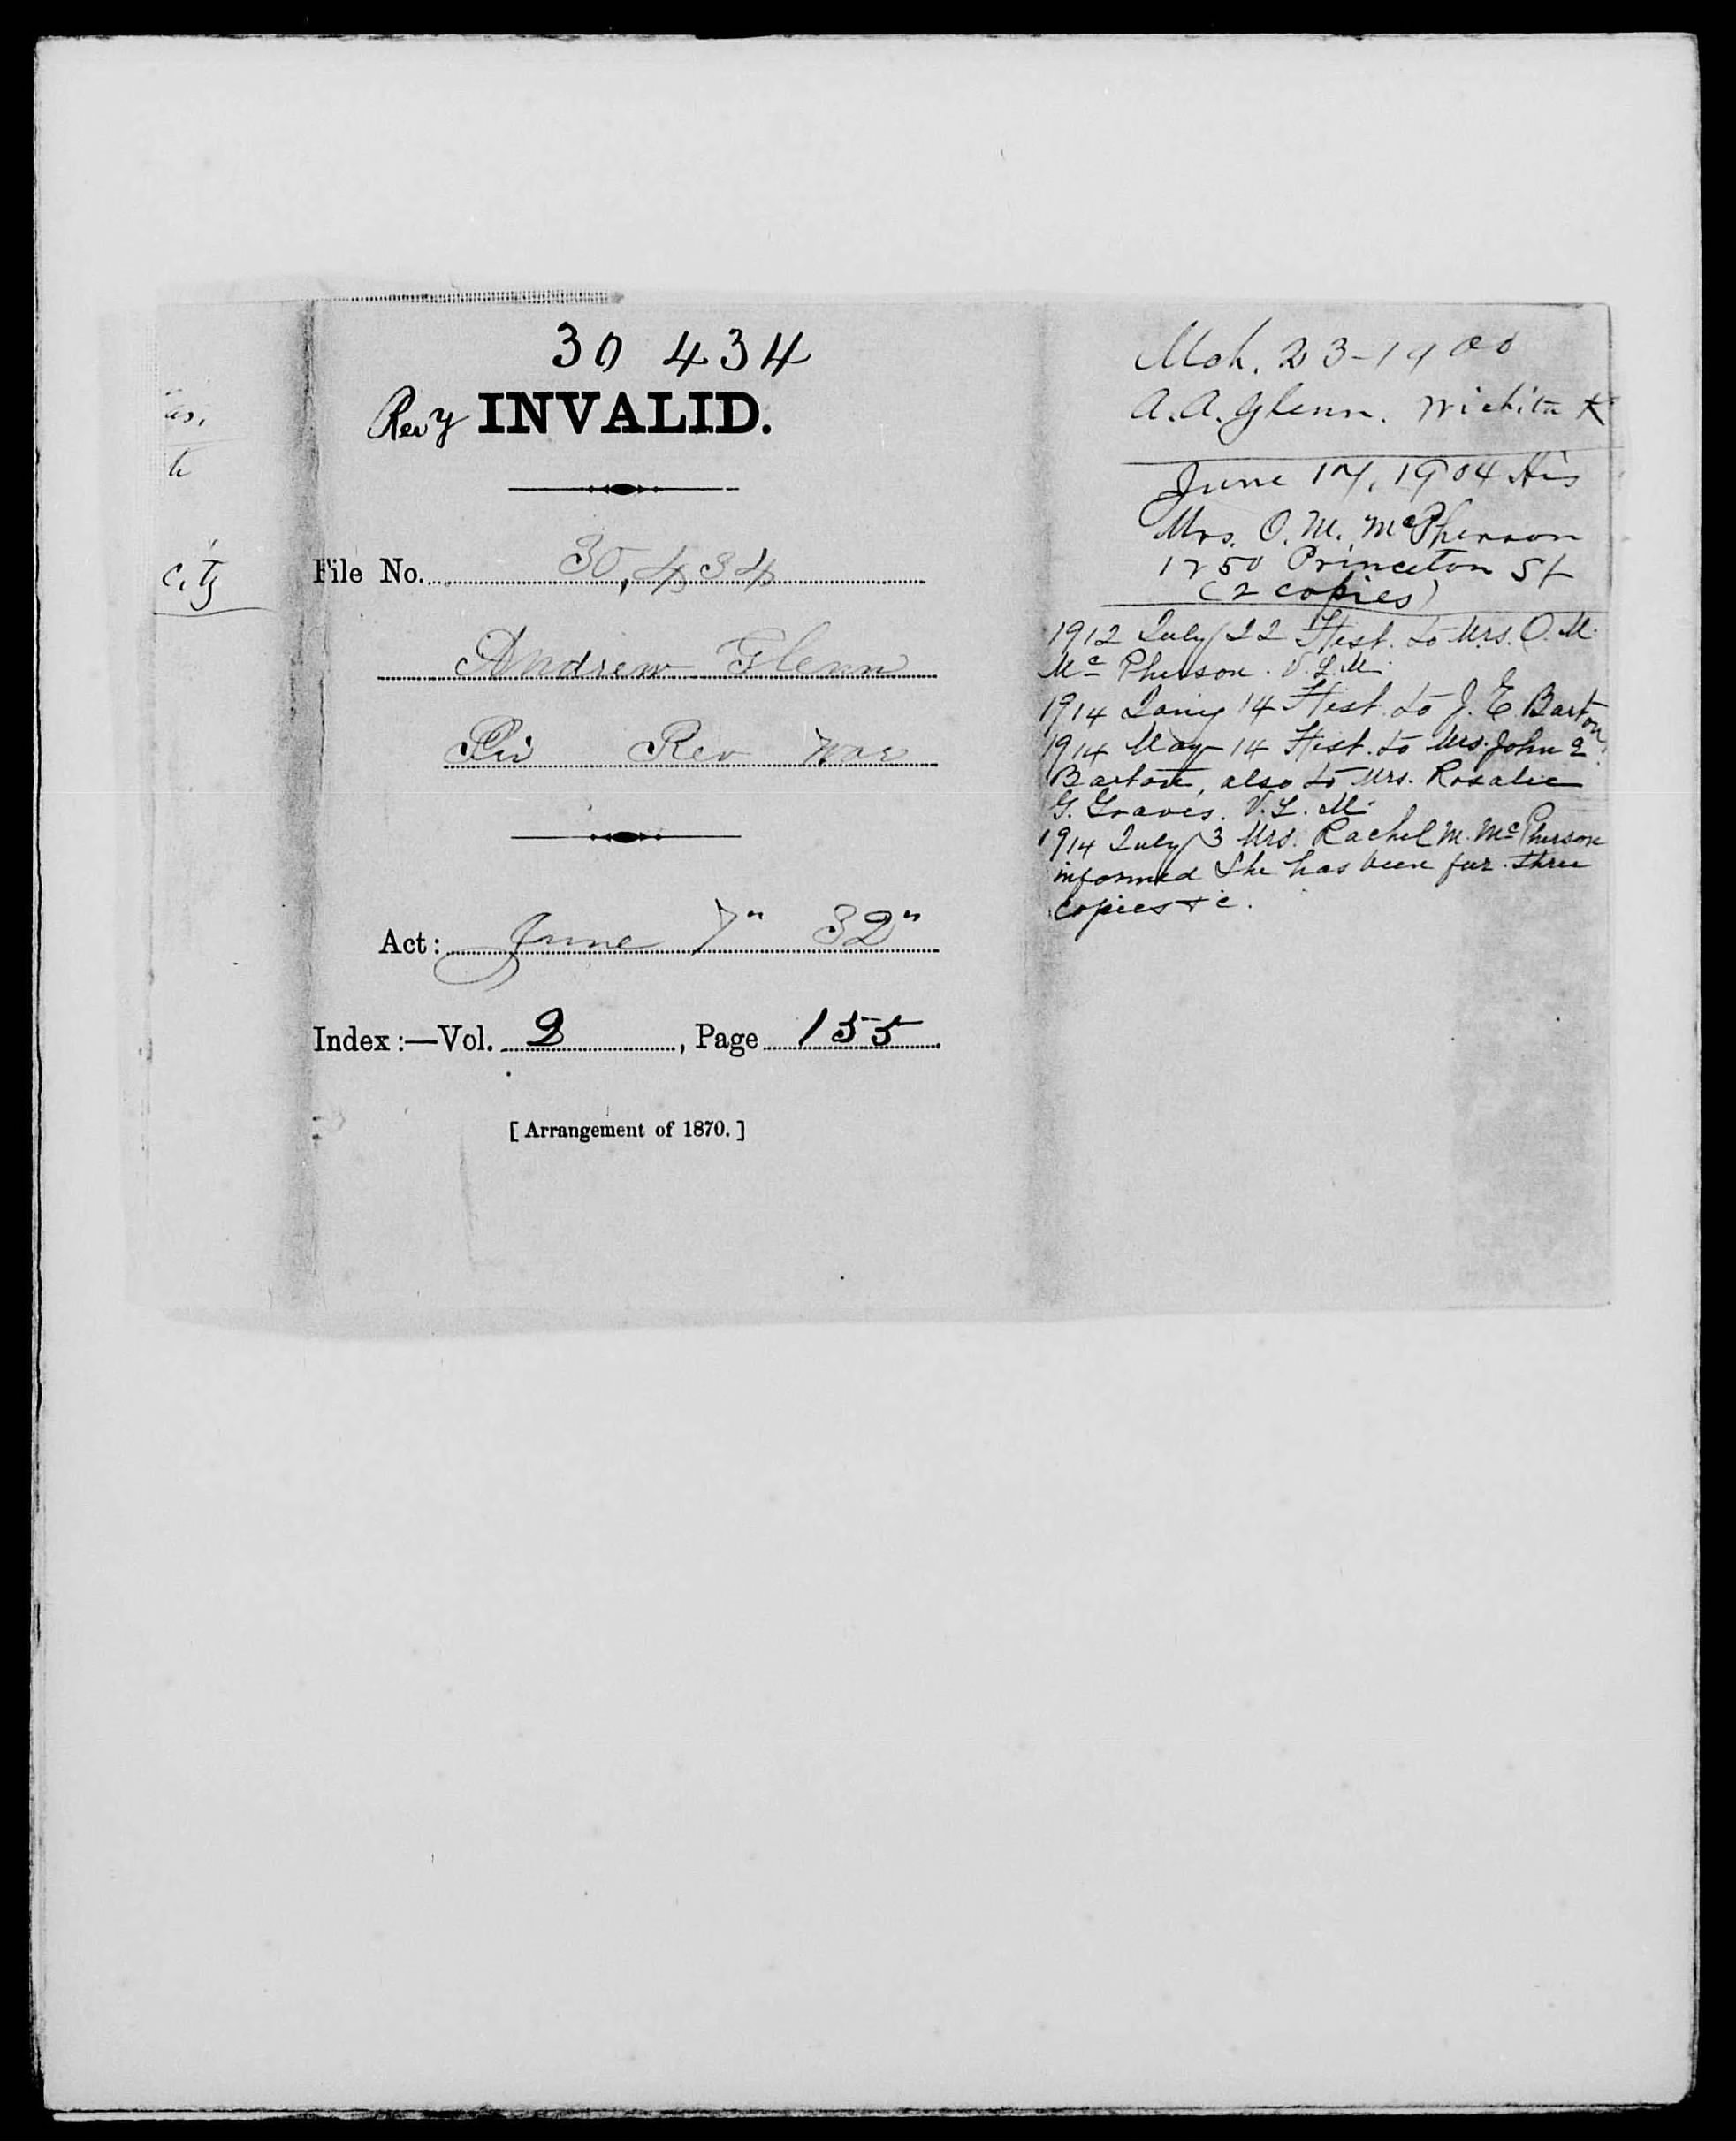 as,
te
City
30 434
Rev'y INVALID.
File No. 30,434
Andrew Glenn
Priv Rev War
Act: June 7" 32"
Index:—Vol. 2, Page 155
[ Arrangement of 1870. ]
Mch. 23-1900
A. A. Glenn. Wichita K
June 17, 1904 His
Mrs. O. M. McPherson
1750 Princeton St
(2 copies)
1912 July 22 Hist. to Mrs. O. M.
McPherson. V.L.M.
1914 Jany 14 Hist. to J. E. Barton
1914 May 14 Hist. to Mrs. John
Barton, also to Mrs. Rosalie
G. Graves. V.L.M.
1914 July 3 Mrs. Rachel M. McPherson
informed she has been fur. three
copies &c.